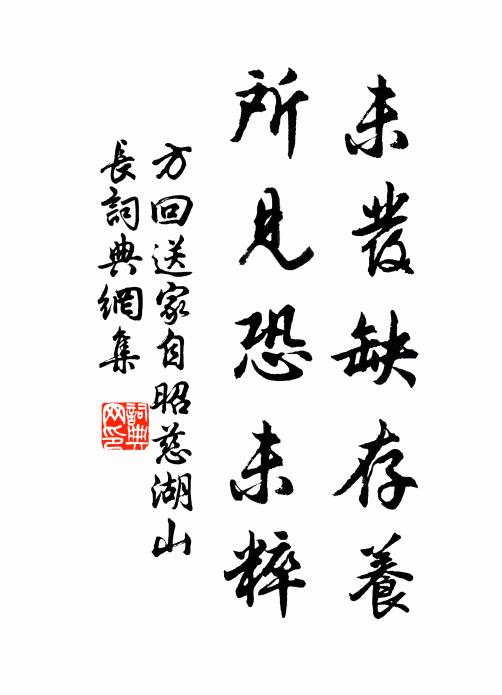 未發缺存養
所見恐未粹
方回送家自昭慈湖山
長詞典網集
詞典
网印